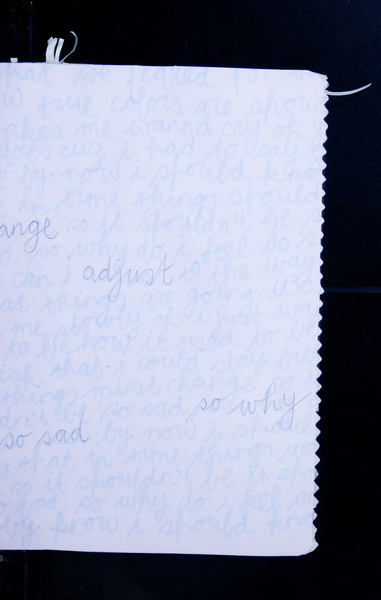 hat we feared for
w true colors are show
akes me wanna cry oh
does cuz i had to say
e by now i should kno
in time things should
ange so it shouldn't be
d so why do i feel so s
can i adjust to the way
at things are going it's
me slowly oh i just wa
to be how it used to be
ish that i could stay bu
things must change so i
dn't be so sad so why
so sad by now i should
w that in time things wo
so it shouldn't be it sho
o sad so why do i feel so
by know i should kno